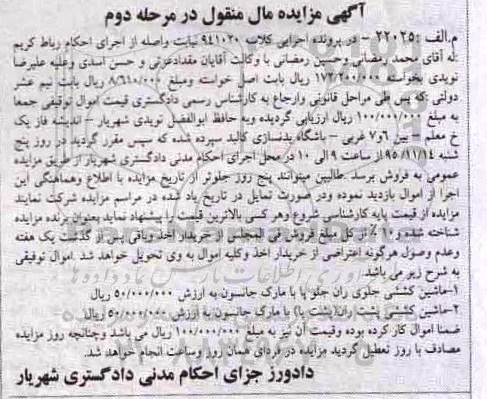 آگهی مزایده مال منقول در مرحله دوم
م.الف ۲۲۰۲۵ - در پرونده اجرایی کلاسه ۹۴۱۰۲۰ نیابت واصله از اجرای احکام رباط کریم
له آقای محمد رمضانی وحسین رمضانی با وکالت آقایان مقدادعزتی و حسن اسدی وعلیه علیرضا
نویدی بخواسته ۱۷۲/۲۰۰/۰۰۰ ریال بابت اصل خواسته ومبلغ ۸/۶۱۰/۰۰۰ ریال بابت نیم عشر
دولتی که پس طی مراحل قانونی وارجاع به کارشناس رسمی دادگستری قیمت اموال توقیفی جمعا
به مبلغ ۱۰۰/۰۰۰/۰۰۰ ریال ارزیابی گردیده وبه حافظ ابوالفضل نویدی شهریار - اندیشه فاز یک
خ معلم - بین ۶و۷ غربی - باشگاه بدنسازی کالبد سپرده شده که سپس مقرر گردید در روز پنج
شنبه ۹۵/۱۱/۱۴ از ساعت ۹ الی ۱۰ در محل اجرای احکام مدنی دادگستری شهریار از طریق مزایده
عمومی به فروش برسد .طالبین میتوانند پنج روز جلوتر از تاریخ مزایده با اطلاع وهماهنگی این
اجرا از اموال بازدید نموده ودر صورت تمایل در تاریخ یاد شده در مراسم مزایده شرکت نمایند
مزایده از قیمت پایه کارشناسی شروع وهر کسی بالاترین قیمت را پیشنهاد نماید بعنوان برنده مزایده
شناخته شده و۱۰٪ از کل مبلغ فروش فی المجلس از خریدار اخذ وباقی پس از گذشت یک هفته
وعدم وصول هرگونه اعتراضی از خریدار اخذ وکلیه اموال به وی تحویل خواهد شد. اموال توقیفی
به شرح زیر می باشد.
۱-ماشین کششی جلوی ران جلو پا با مارک جانسون به ارزش ۵۰/۰۰۰/۰۰۰ ریال
۲-ماشین کششی پشت ران(پشت پا) با مارک جانسون به ارزش ۵۰/۰۰۰/۰۰۰ ریال
ضمنا اموال کار کرده بوده وقیمت آن نیز به مبلغ ۱۰۰/۰۰۰/۰۰۰ ریال می باشد وچنانچه روز مزایده
مصادف با روز تعطیل گردید مزایده در فردای همان روز وساعت انجام خواهد شد.
دادورز جزای احکام مدنی دادگستری شهریار